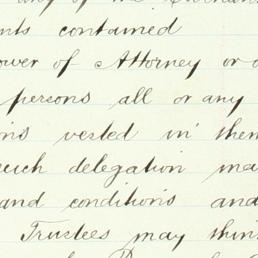 any of
nts contained
ower of Attorney or
persons all or any
ons vested in them
such delegation ma
and conditions and
Trustees may thin